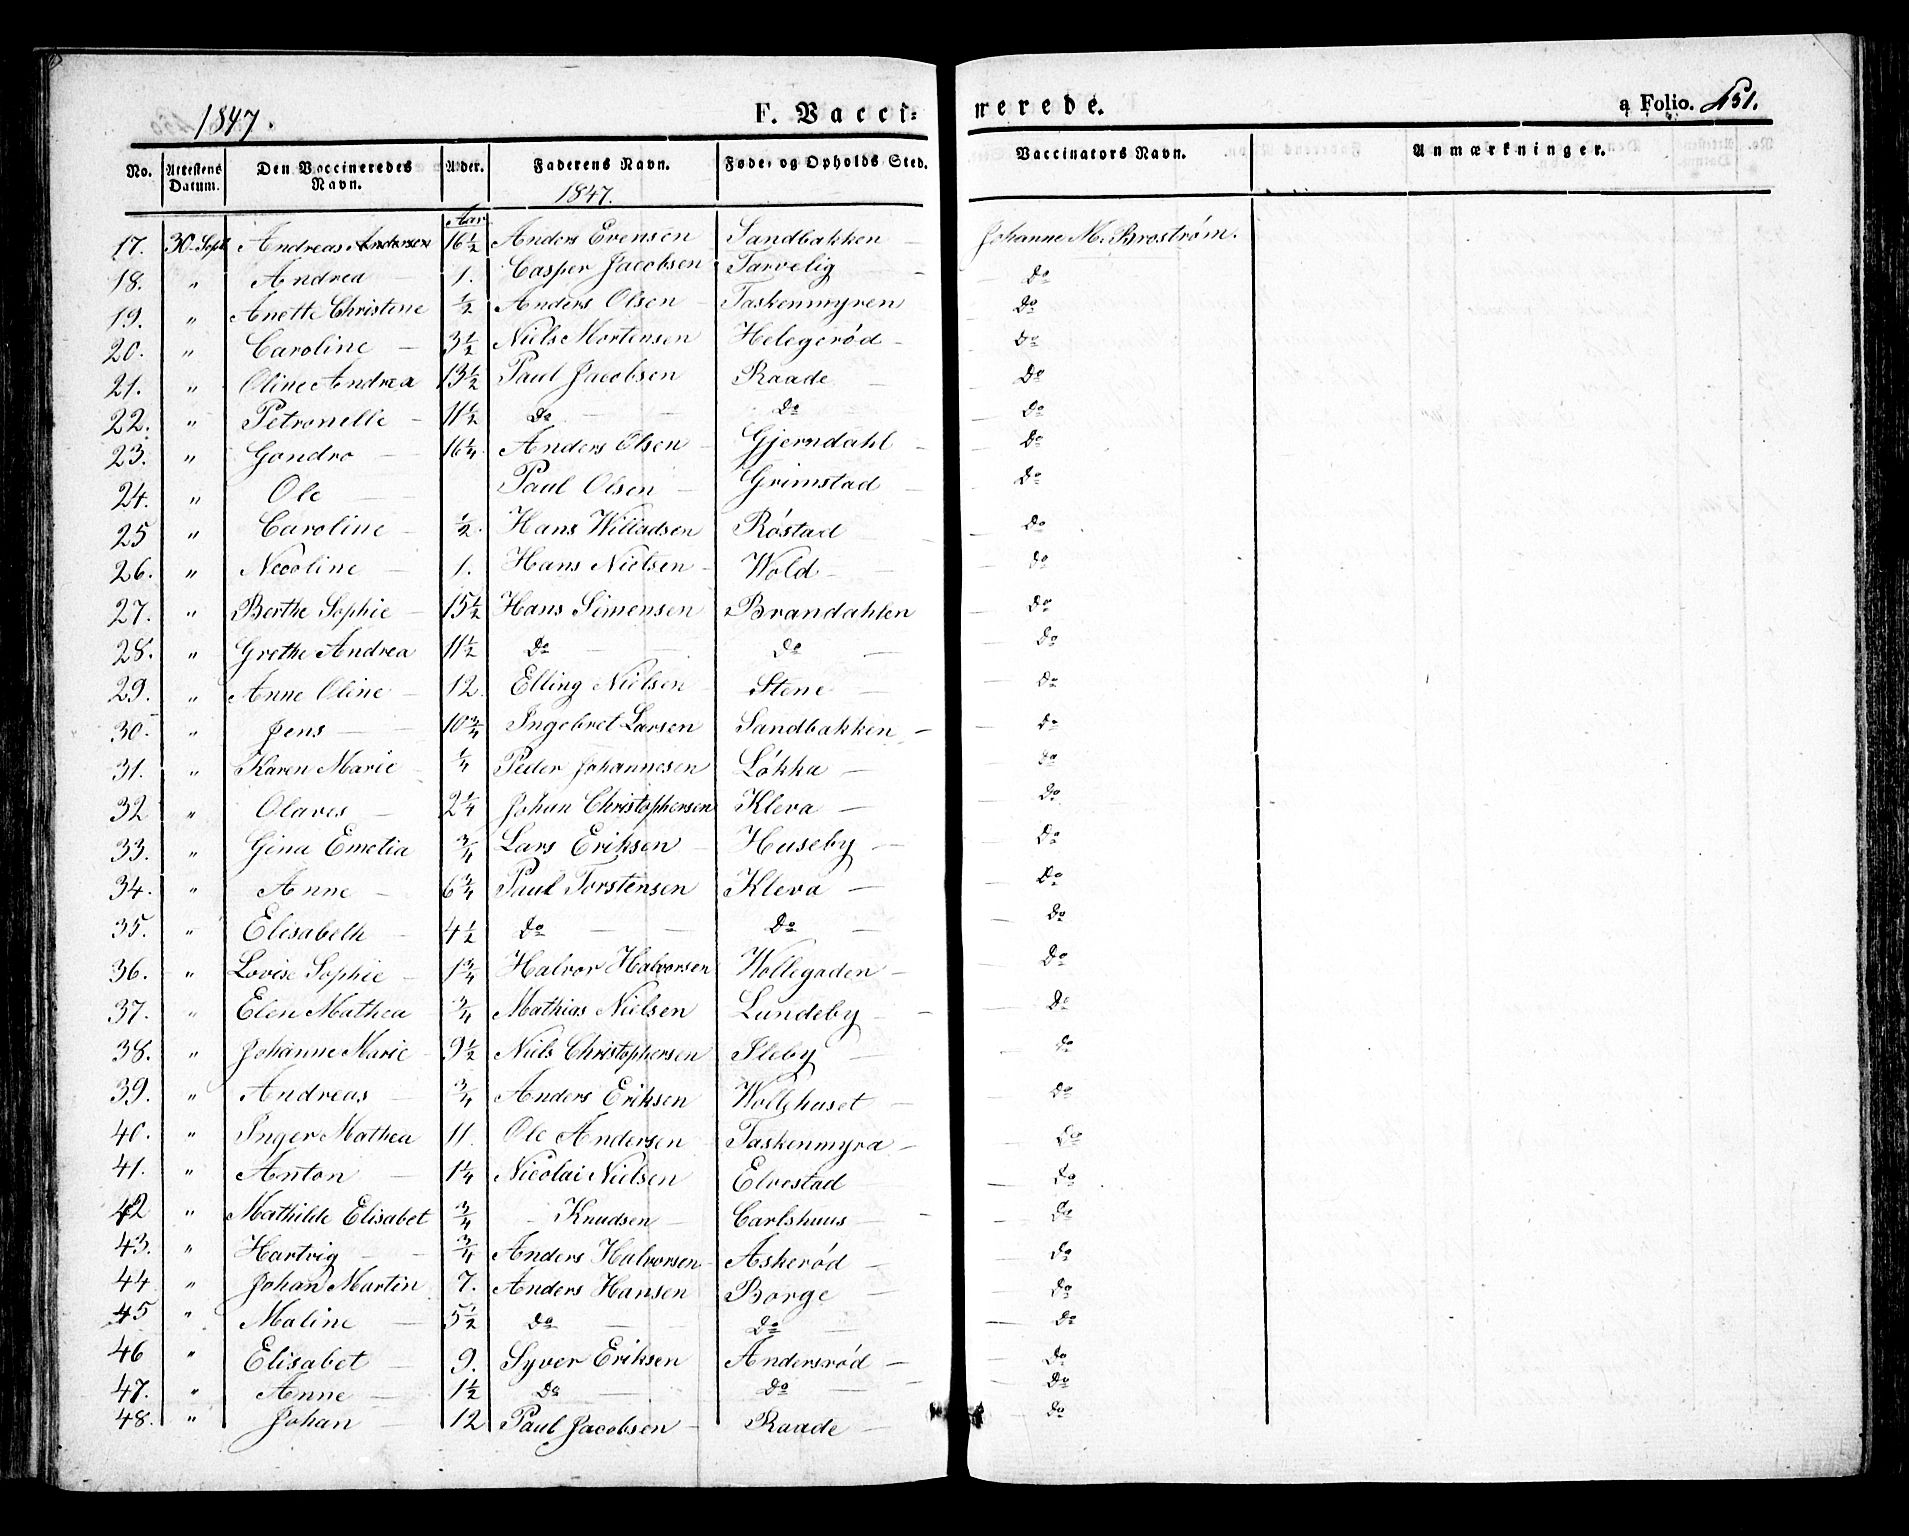 1847. F. Vacci= nerede. a Folio. 151.
No. Attestens Datum. Den Vaccineredes Navn. Alder. Faderens Navn. Føde- og Opholds Sted. Vaccinators Navn. Anmærkninger.
1847.
Aar
17. 30. Sept Andreas Andersen 16 1/2 Anders Evensen Sandbakken Johanne M. Broström.
18. " Andrea 1. Casper Jacobsen Tarvelig — Do
19. " Anette Christine 1/2 Anders Olsen — Taskenmyren — Do
20. " Caroline — 3 1/2 Niels Mortensen Helegerød — Do
21. " Oline Andrea 13 1/2 Paul Jacobsen Raade — Do
22. " Petronelle — 11 1/2 Do — — Do — Do
23. " Gondro — 16 1/4 Anders Olsen — Gjerndahl — Do
24. " Ole — Paul Olsen — Grimstad — Do
25 " Caroline — 1/2. Hans Willadsen Röstad — Do
26. " Nicoline — 1. Hans Nielsen — Wold — Do
27. " Berthe Sophie — 15 1/2 Hans Simensen Brandahlen — Do
28. " Grethe Andrea 11 1/2 Do — — Do — Do
29. " Anne Oline — 12. Elling Nielsen — Stene — Do
30. " Jens — 10 3/4 Ingebret Larsen Sandbakken — Do
31. " Karen Marie — 1/4 Peder Johannesen Lökka — Do
32 " Olaves — 2 1/4 Johan Christophersen Kleva — Do
33. " Gina Emelia 3/4 Lars Eriksen — Huseby — Do
34. " Anne — 6 3/4 Paul Torstensen Kleva — Do
35. " Elisabeth — 4 1/2 Do — — Do — Do
36. " Lovise Sophie — 1 3/4 Halvor Halvorsen Wollegaden — Do
37. " Elen Mathea 3/4 Mathias Nielsen Lundeby — Do
38. " Johanne Marie — 9 1/2 Niels Christophersen Sleby — Do
39. " Andreas — 3/4 Anders Eriksen Wollehuset — Do
40. " Inger Mathea 11. Ole Andersen — Taskenmyra — Do
41. " Anton — 1 1/4 Nicolai Nielsen Elvestad — Do
42 " Mathilde Elisabet 3/4 — Knudsen — Carlshuus — Do
43. " Hartvig — 3/4 Anders Halvorsen Askerød — Do
44 " Johan Martin 7. Anders Hansen Borge — Do
45 " Maline — 5 1/2 Do — Do — Do
46 " Elisabet — 9. Syver Eriksen Andersrød — Do
47. " Anne — 1 1/2 Do — Do — Do
48. " Johan 12 Paul Jacobsen — Raade — Do